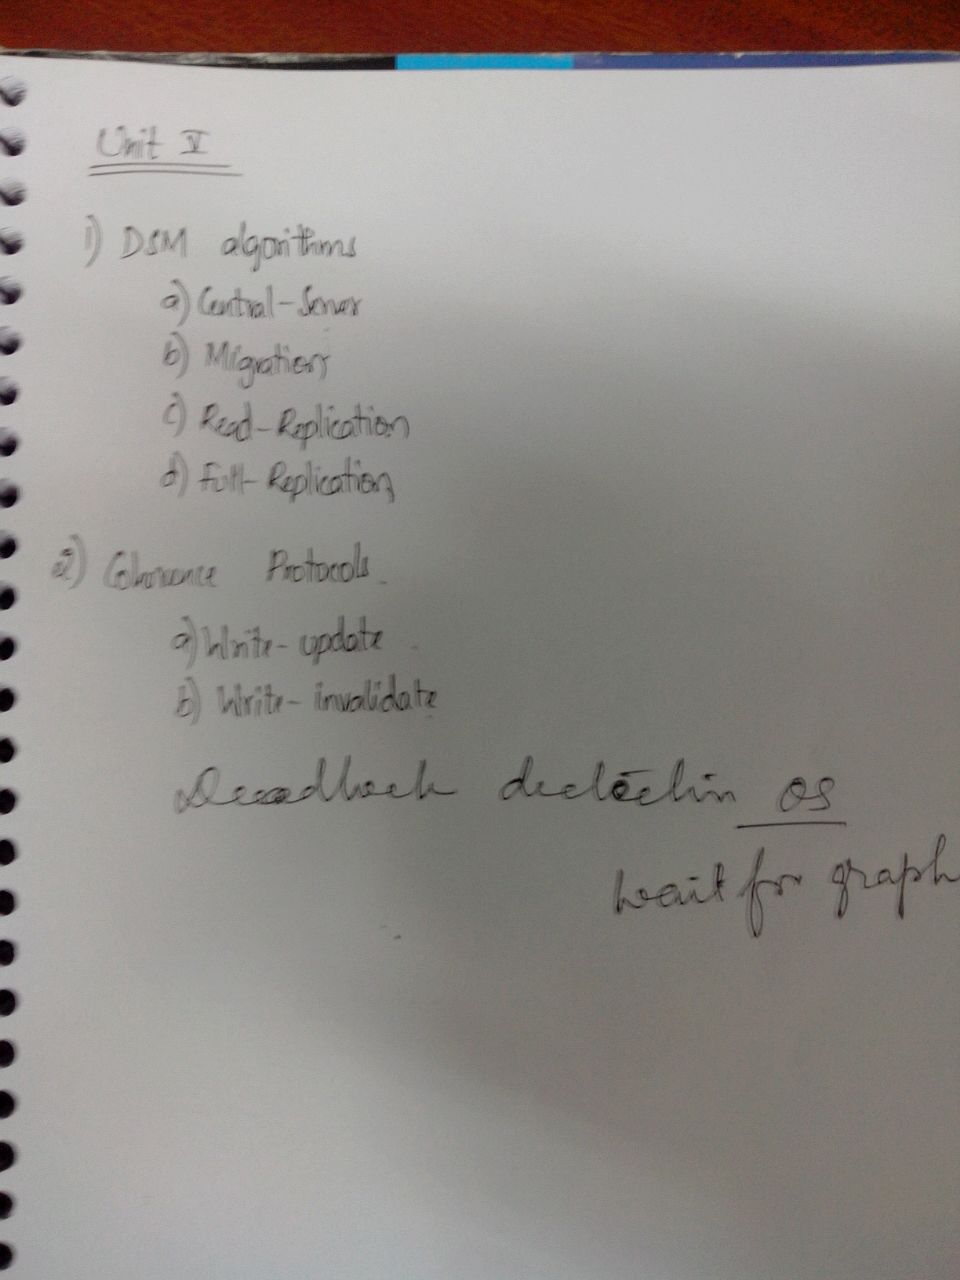 Unit V
1) DSM algorithms
a) Central-Server
b) Migration
c) Read-Replication
d) Full-Replication
2) Coherence Protocols
a) Write-update
b) Write-invalidate
Deadlock detection OS
wait for graph